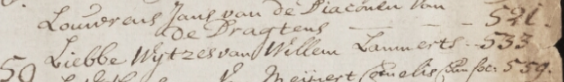 Louwrens Jans van de Diaconen van
de Dragtens - - - 521.
Liebbe Wytzes van Willem Lammerts - 533
59 Meinert Cornelis 539.